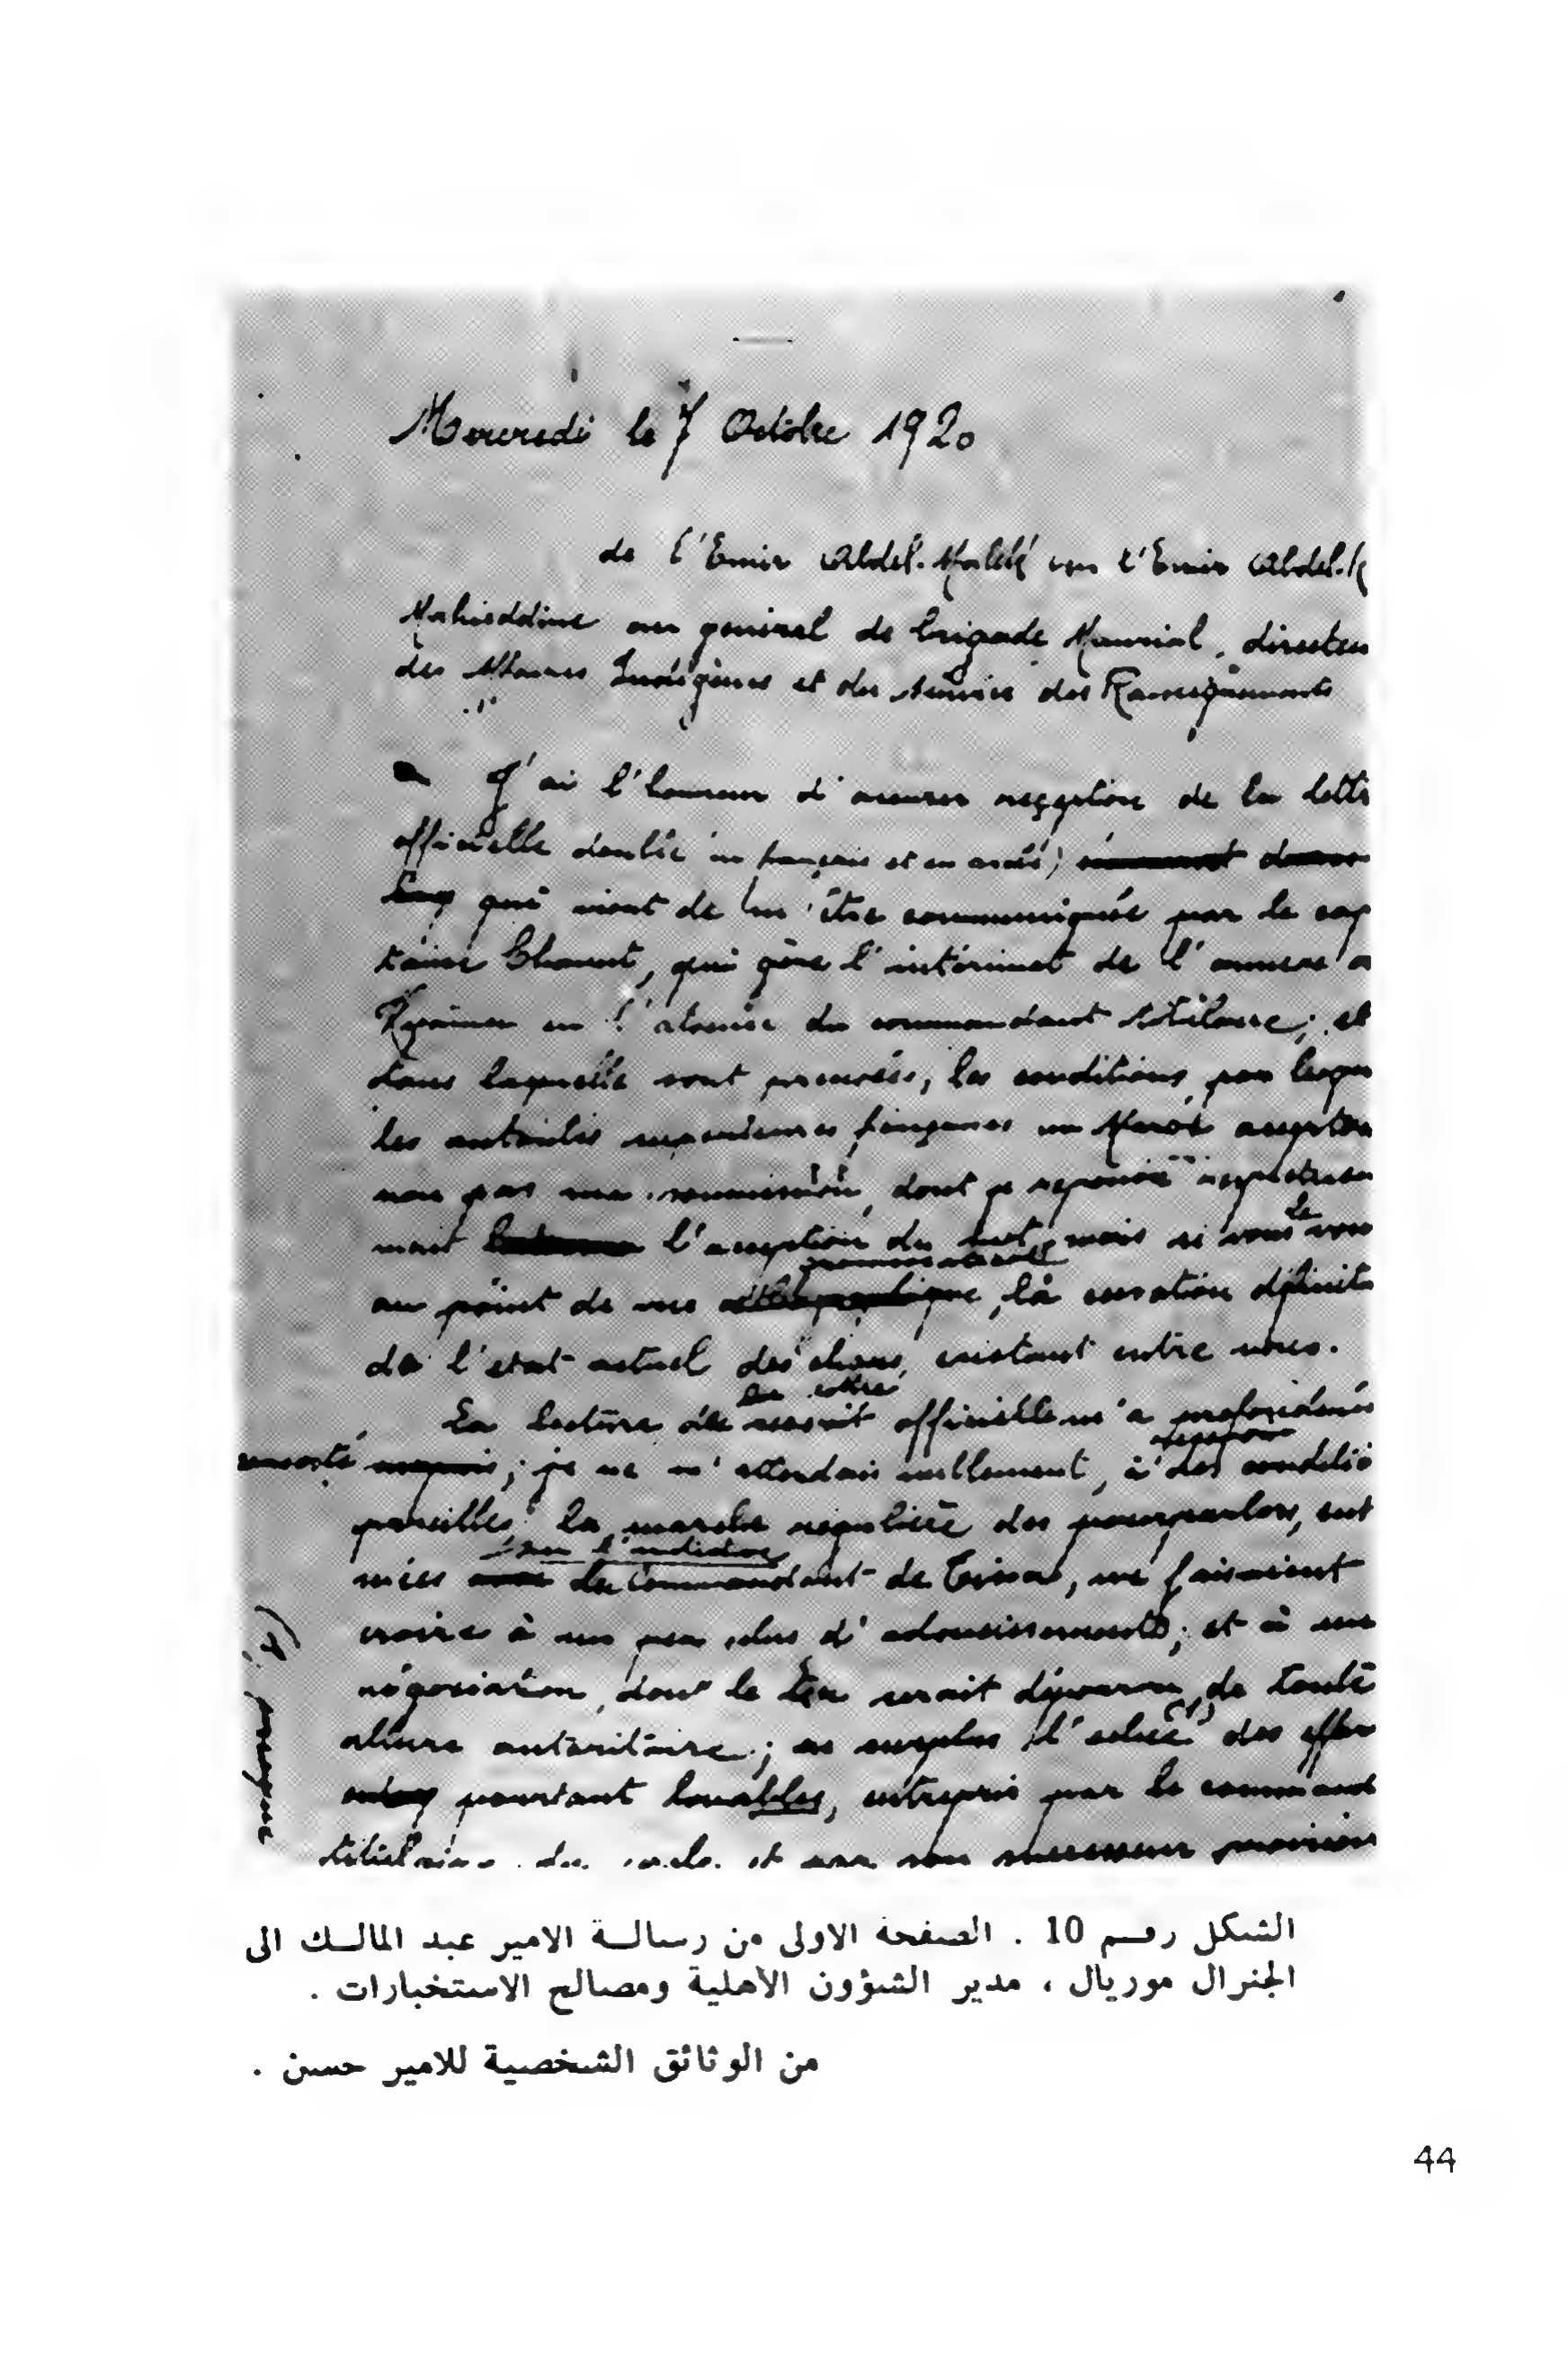 Mercredi le 7 Octobre 1920
de l'Emir Abdel-Malek ben l'Emir Abdel-K
Mahieddine au général de brigade Maurial, directeu
des Affaires Indigènes et du service des Renseignements
J'ai l'honneur d'accuser reception de la lettr
officielle doublée en français et en arabe,
qui vient de m'être communiquée par le cap
taine Chauvet, qui gère l'intérimat de l'annexe
en l'absence du commandant titilaire; et
dans laquelle sont precisées, les conditions, par lesqu
les autorités superieures françaises au Maroc accepten
non pas ma soummission, dont je repousse respectueu
l'acception du mot, mais si vous le vou
au point de vue la cessation définit
de l'etat actuel des choses existant entre nous.
La lecture de la lettre officielle m'a profondémen
; je ne m'attendais nullement, à des conditio
pareilles. La marche regulière des pourparlers,
du Commandant de me faisaient
croire à un peu plus d'adoucissements; et à une
négociation, dont le serait dépourvu, de toute
allure autoritaire; au surplus l'échec (1) des effor
pourtant louables, entrepris par le command
et par son successeur
(1) presque
الشكل رقم 10 . الصفحة الاولى من رسالة الامير عبد المالك الى
الجنرال موريال ، مدير الشؤون الأهلية ومصالح الاستخبارات .
من الوثائق الشخصية للامير حسن .
44